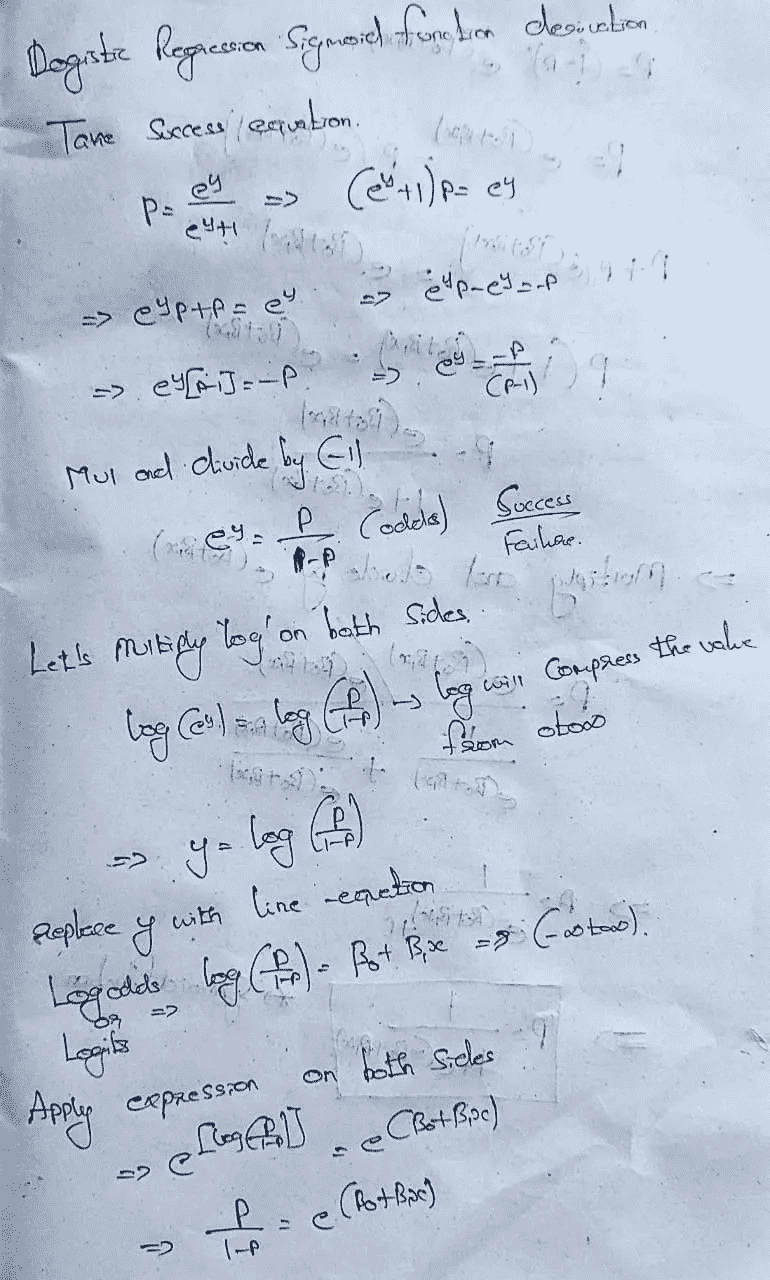 Logistic Regression Sigmoid function derivation
Take Success equation.
P = e^y / (e^y+1) => (e^y+1)P = e^y
=> e^y P+P = e^y => e^y P-e^y = -P
=> e^y[P-1] = -P => e^y = -P / (P-1)
Mul and divide by (-1)
e^y = P / (1-P) (odds) Success / Failure.
Let's multiply 'log' on both Sides.
log (e^y) = log (P / (1-P)) → log will Compress the value
from 0 to ∞
=> y = log (P / (1-P))
Replace y with line -equation
Log odds => log (P / (1-P)) = β0 + β1x => (-∞ to ∞).
or
Logits
Apply expression on both Sides
=> e^[log(P / (1-P))] = e^(β0+β1x)
=> P / (1-P) = e^(β0+β1x)